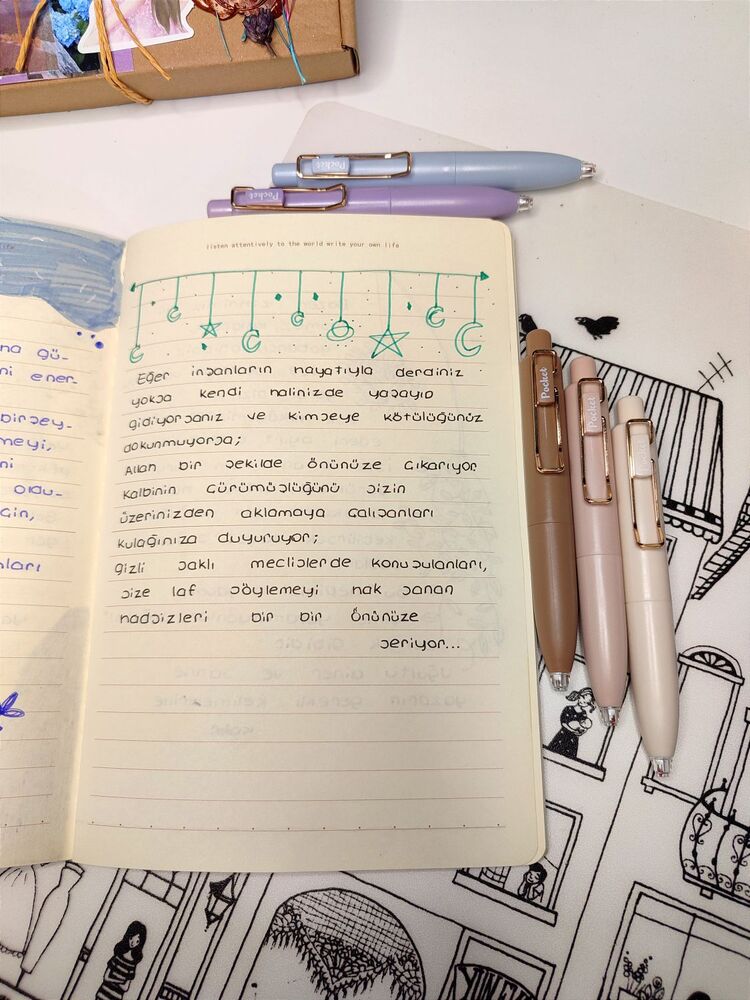 Pocket
Pocket
listen attentively to the world write your own life
Eğer insanların hayatıyla derdiniz
yoksa kendi halinizde yaşayıp
gidiyorsanız ve kimseye kötülüğünüz
dokunmuyorsa;
Allah bir şekilde önünüze çıkarıyor
Kalbinin çürümüşlüğünü sizin
üzerinizden aklamaya çalışanları
kulağınıza duyuruyor;
gizli saklı meclislerde konuşulanları,
size laf söylemeyi hak sanan
hadsizleri bir bir önünüze
seriyor...
na gü-
ni ener-
birşey-
meyi,
ni
oldu-
ları
Pocket
Pocket